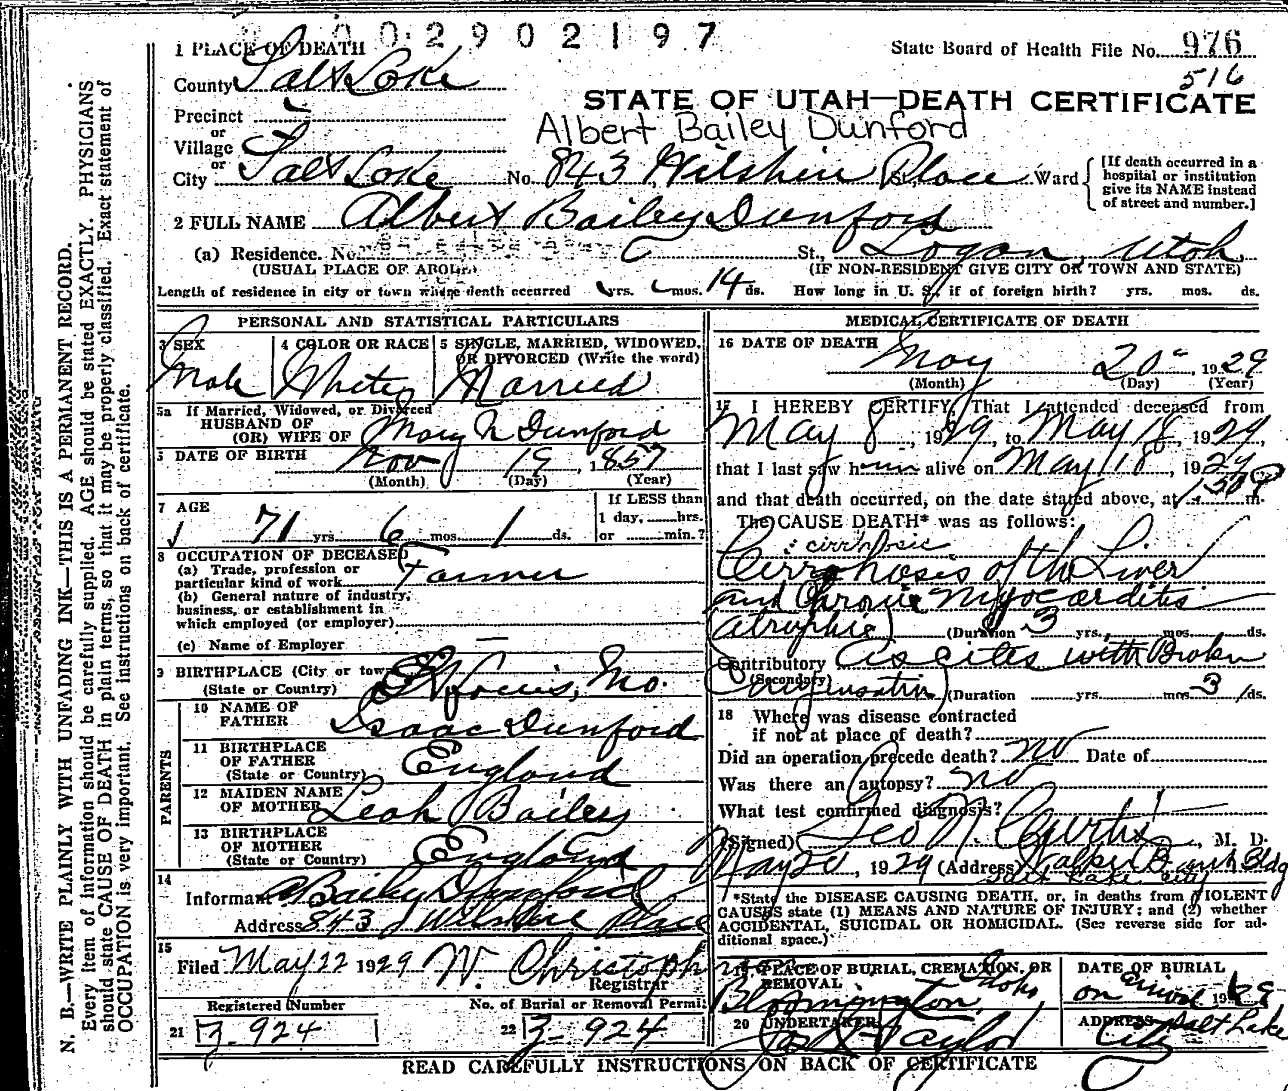 002902197
1 PLACE OF DEATH
State Board of Health File No. 976
County Salt Lake
516
STATE OF UTAH—DEATH CERTIFICATE
Precinct
or
Albert Bailey Dunford
Village
or
City Salt Lake No. 843 Wilshire Place St., Ward
[If death occurred in a hospital or institution give its NAME instead of street and number.]
2 FULL NAME Albert Bailey Dunford
(a) Residence. No. St., Logan, Utah
(USUAL PLACE OF ABODE) (IF NON-RESIDENT GIVE CITY OR TOWN AND STATE)
Length of residence in city or town where death occurred yrs. mos. 14 ds. How long in U. S. if of foreign birth? yrs. mos. ds.
PERSONAL AND STATISTICAL PARTICULARS
3 SEX 4 COLOR OR RACE 5 SINGLE, MARRIED, WIDOWED,
OR DIVORCED (Write the word)
Male White Married
5a If Married, Widowed, or Divorced
HUSBAND OF
(OR) WIFE OF Mary N Dunford
6 DATE OF BIRTH Nov 19, 1857
(Month) (Day) (Year)
7 AGE
71 yrs 6 mos. 1 ds.
If LESS than
1 day, hrs.
or min.?
8 OCCUPATION OF DECEASED
(a) Trade, profession or
particular kind of work Farmer
(b) General nature of industry,
business, or establishment in
which employed (or employer)
(c) Name of Employer —
9 BIRTHPLACE (City or town)
(State or Country) Mo.
PARENTS
10 NAME OF
FATHER Isaac Dunford
11 BIRTHPLACE
OF FATHER
(State or Country) England
12 MAIDEN NAME
OF MOTHER Leah Bailey
13 BIRTHPLACE
OF MOTHER
(State or Country) England
14
Informant A Bailey Dunford
Address 843 Wilshire Place
15
Filed May 22 1929 W. Christoph
Registrar
Registered Number No. of Burial or Removal Permit
21 Z-924 22 Z-924
MEDICAL CERTIFICATE OF DEATH
16 DATE OF DEATH
May 20, 1929
(Month) (Day) (Year)
17 I HEREBY CERTIFY, That I attended deceased from
May 8, 1929, to May 18, 1929,
that I last saw him alive on May 18, 1929
and that death occurred, on the date stated above, at m.
The CAUSE DEATH* was as follows:
cirrhosic
Cirrhosis of the Liver
and Chronic Myocarditis
atrophic (Duration 3 yrs. mos. ds.
Contributory Ascites with Broken
(Secondary)
Compensation (Duration yrs mos 3 ds.
18 Where was disease contracted
if not at place of death?
Did an operation precede death? no Date of
Was there an autopsy? no
What test confirmed diagnosis?
(Signed) Geo N. Curtis, M. D.
May 20, 1929 (Address) Walker Bank Bldg
Salt Lake City
*State the DISEASE CAUSING DEATH, or, in deaths from VIOLENT
CAUSES state (1) MEANS AND NATURE OF INJURY; and (2) whether
ACCIDENTAL, SUICIDAL OR HOMICIDAL. (See reverse side for ad-
ditional space.)
19 PLACE OF BURIAL, CREMATION, OR
REMOVAL
Bloomington, Idaho
DATE OF BURIAL
on arrival 1929
20 UNDERTAKER Taylor
ADDRESS Salt Lake
City
READ CAREFULLY INSTRUCTIONS ON BACK OF CERTIFICATE
N. B.—WRITE PLAINLY WITH UNFADING INK—THIS IS A PERMANENT RECORD.
Every item of information should be carefully supplied. AGE should be stated EXACTLY. PHYSICIANS
should state CAUSE OF DEATH in plain terms, so that it may be properly classified. Exact statement of
OCCUPATION is very important. See instructions on back of certificate.